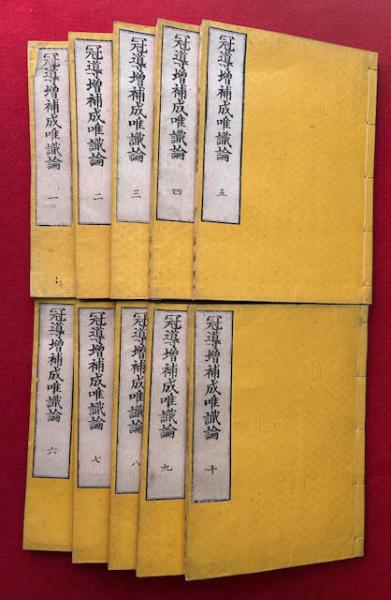 冠導増補成唯識論 一
冠導増補成唯識論 二
冠導増補成唯識論 三
冠導増補成唯識論 四
冠導増補成唯識論 五
冠導増補成唯識論 六
冠導増補成唯識論 七
冠導増補成唯識論 八
冠導増補成唯識論 九
冠導増補成唯識論 十